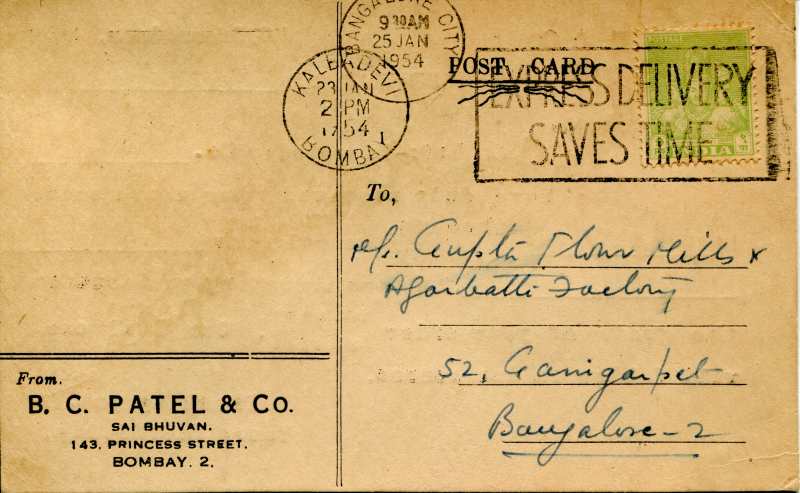 BANGALORE CITY
9 30AM
25 JAN
1954
KALBADEVI
23 JAN
2 PM
1954
BOMBAY 1
POST CARD
EXPRESS DELIVERY
SAVES TIME
To,
M/s. Gupta Flour Mills &
Agarbatti Factory
52, Ganigarpet.
Bangalore-2
From.
B. C. PATEL & CO.
SAI BHUVAN.
143, PRINCESS STREET.
BOMBAY. 2.